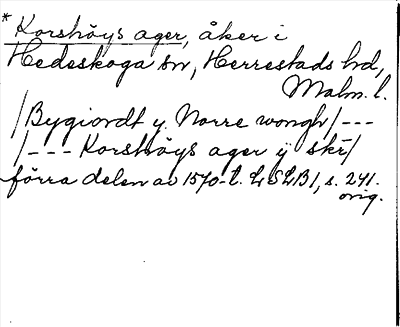 * Korshöys ager, åker i
Hedeskoga sn, Herrestads hd,
Malm. l.
/Bygiordt y. Norre wongh/---
/--- Korshöys ager ÿ skr/
förra delen av 1570-t. LSLB1, s. 241.
orig.